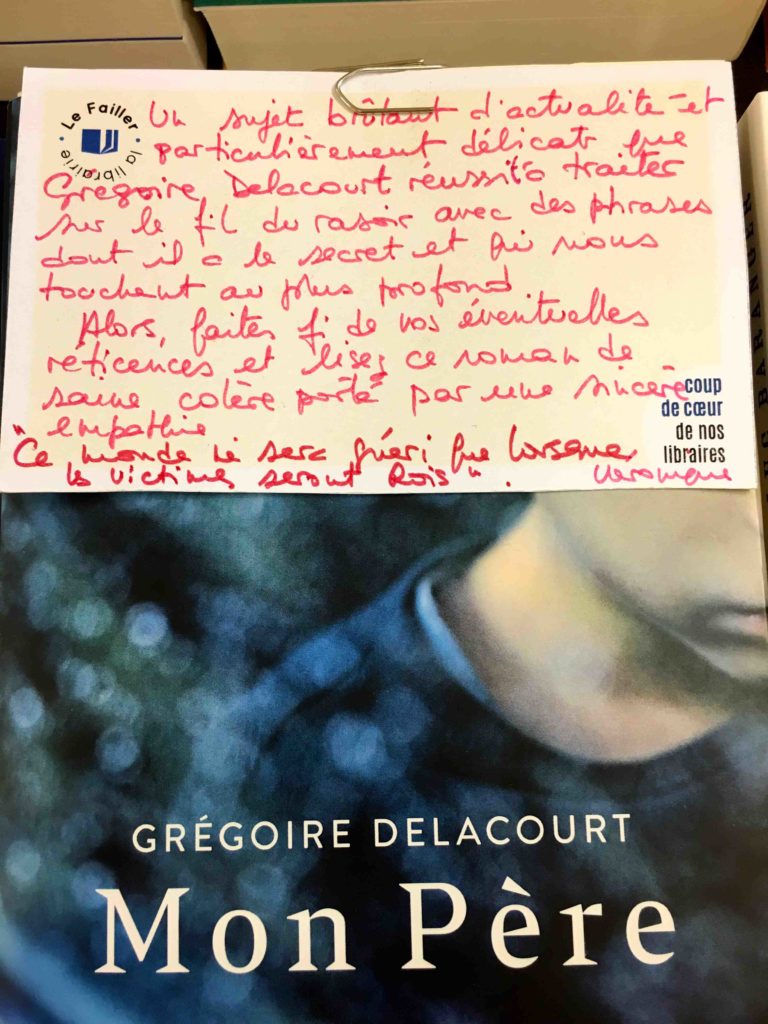 Le Failler · la librairie ·
Un sujet brûlant d'actualité et
particulièrement délicat que
Grégoire Delacourt réussit à traiter
sur le fil du rasoir avec des phrases
dont il a le secret et qui nous
touchent au plus profond
Alors, faites fi de vos éventuelles
réticences et lisez ce roman de
saine colère porté par une sincère
empathie
"Ce monde ne sera guéri que lorsque
les victimes seront Rois". Véronique
coup
de cœur
de nos
libraires
GRÉGOIRE DELACOURT
Mon Père
BARANGER